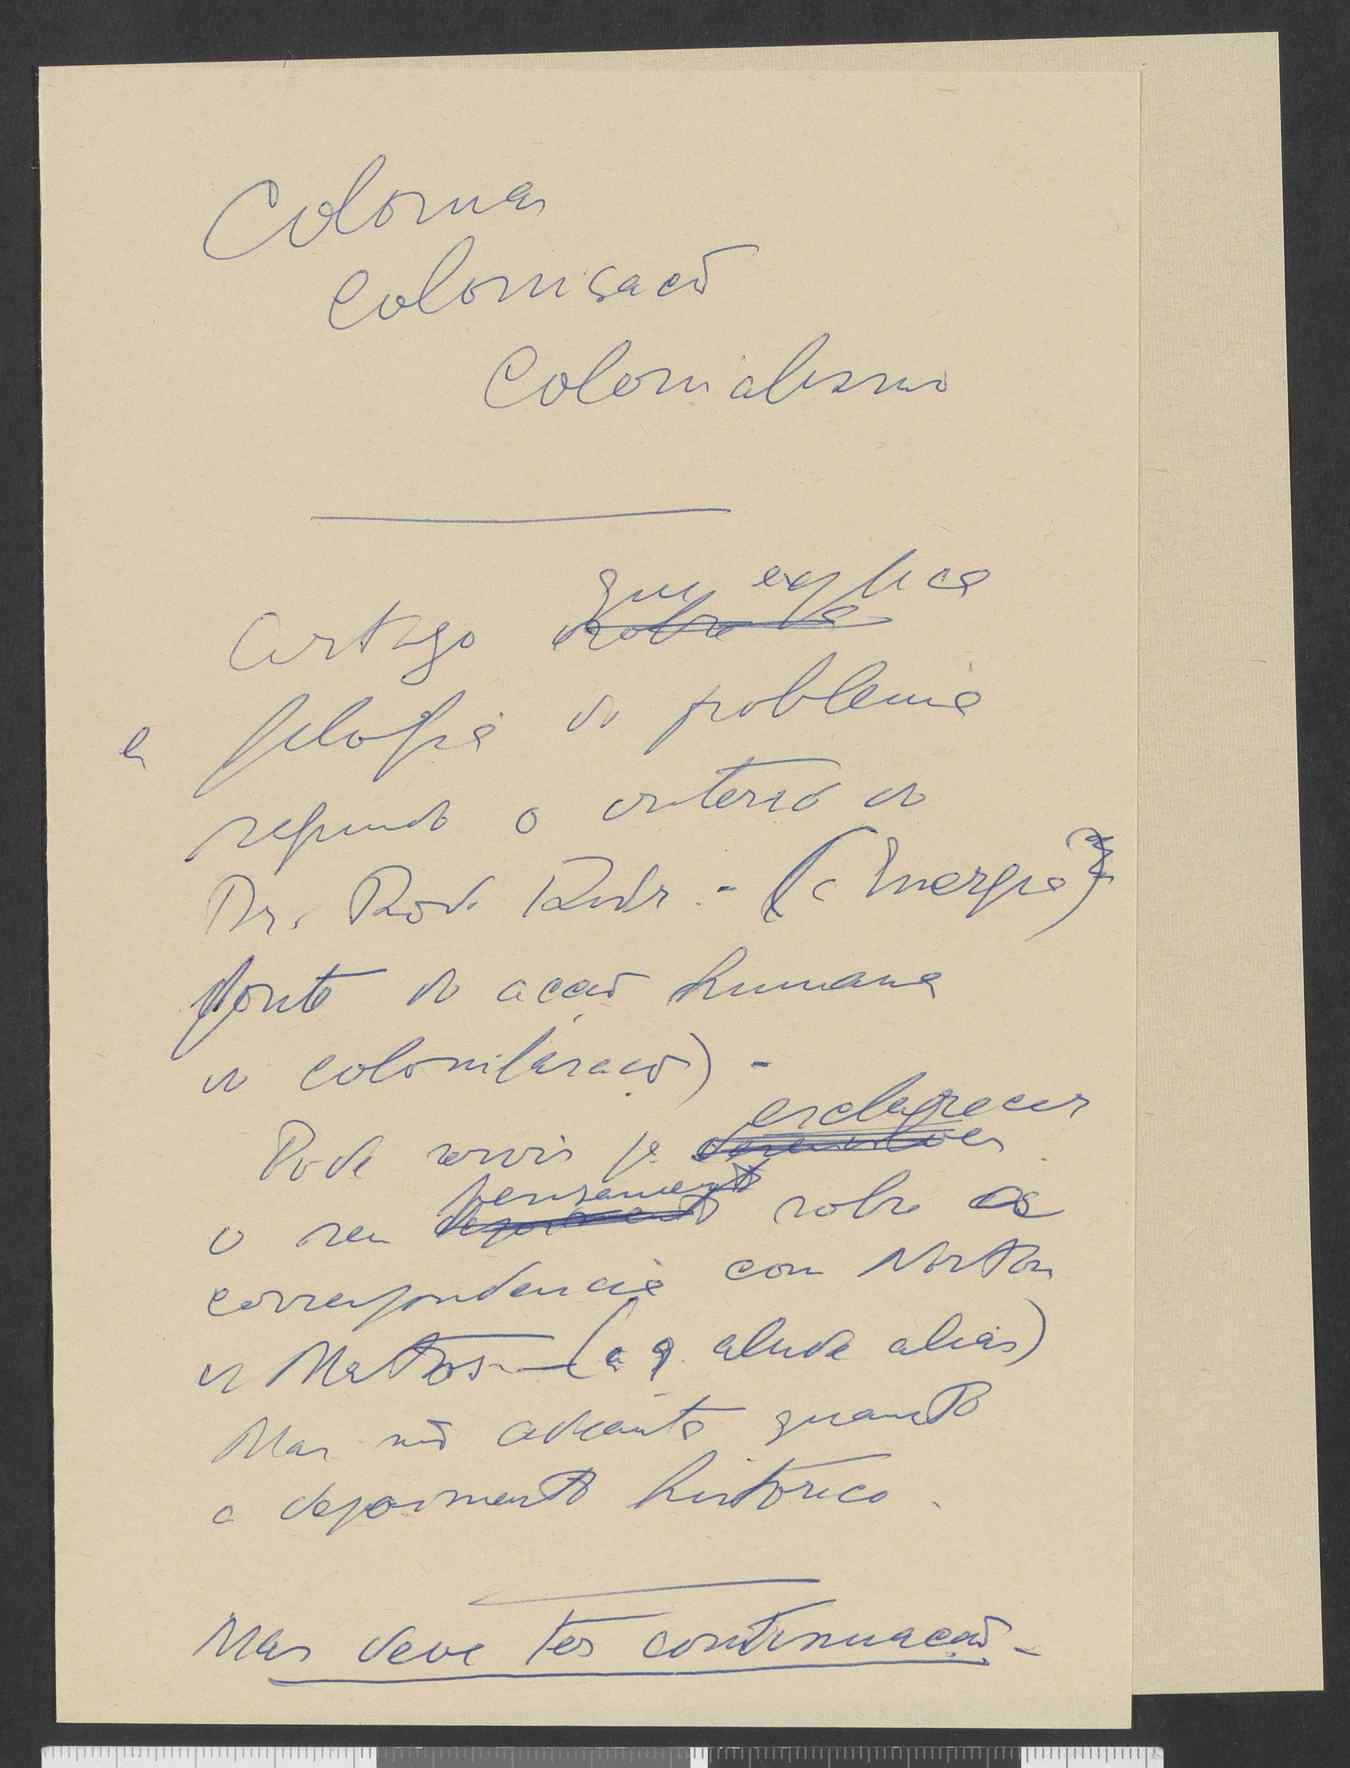 Colonias
Colonisação
Colonialismo
Artigo que explica
a filosofia do problema
segundo o criterio do
Dr. Rod. Rodr. - (a Energia
fonte de acção humana
de colonilisacão) -
Pode servir pª esclarecer
o seu pensamento sobre as
correspondencia com Norton
de Mattos - (a q. alude aliás)
Mas não adianta quanto
a depoimento histórico.
Mas deve ter continuação -